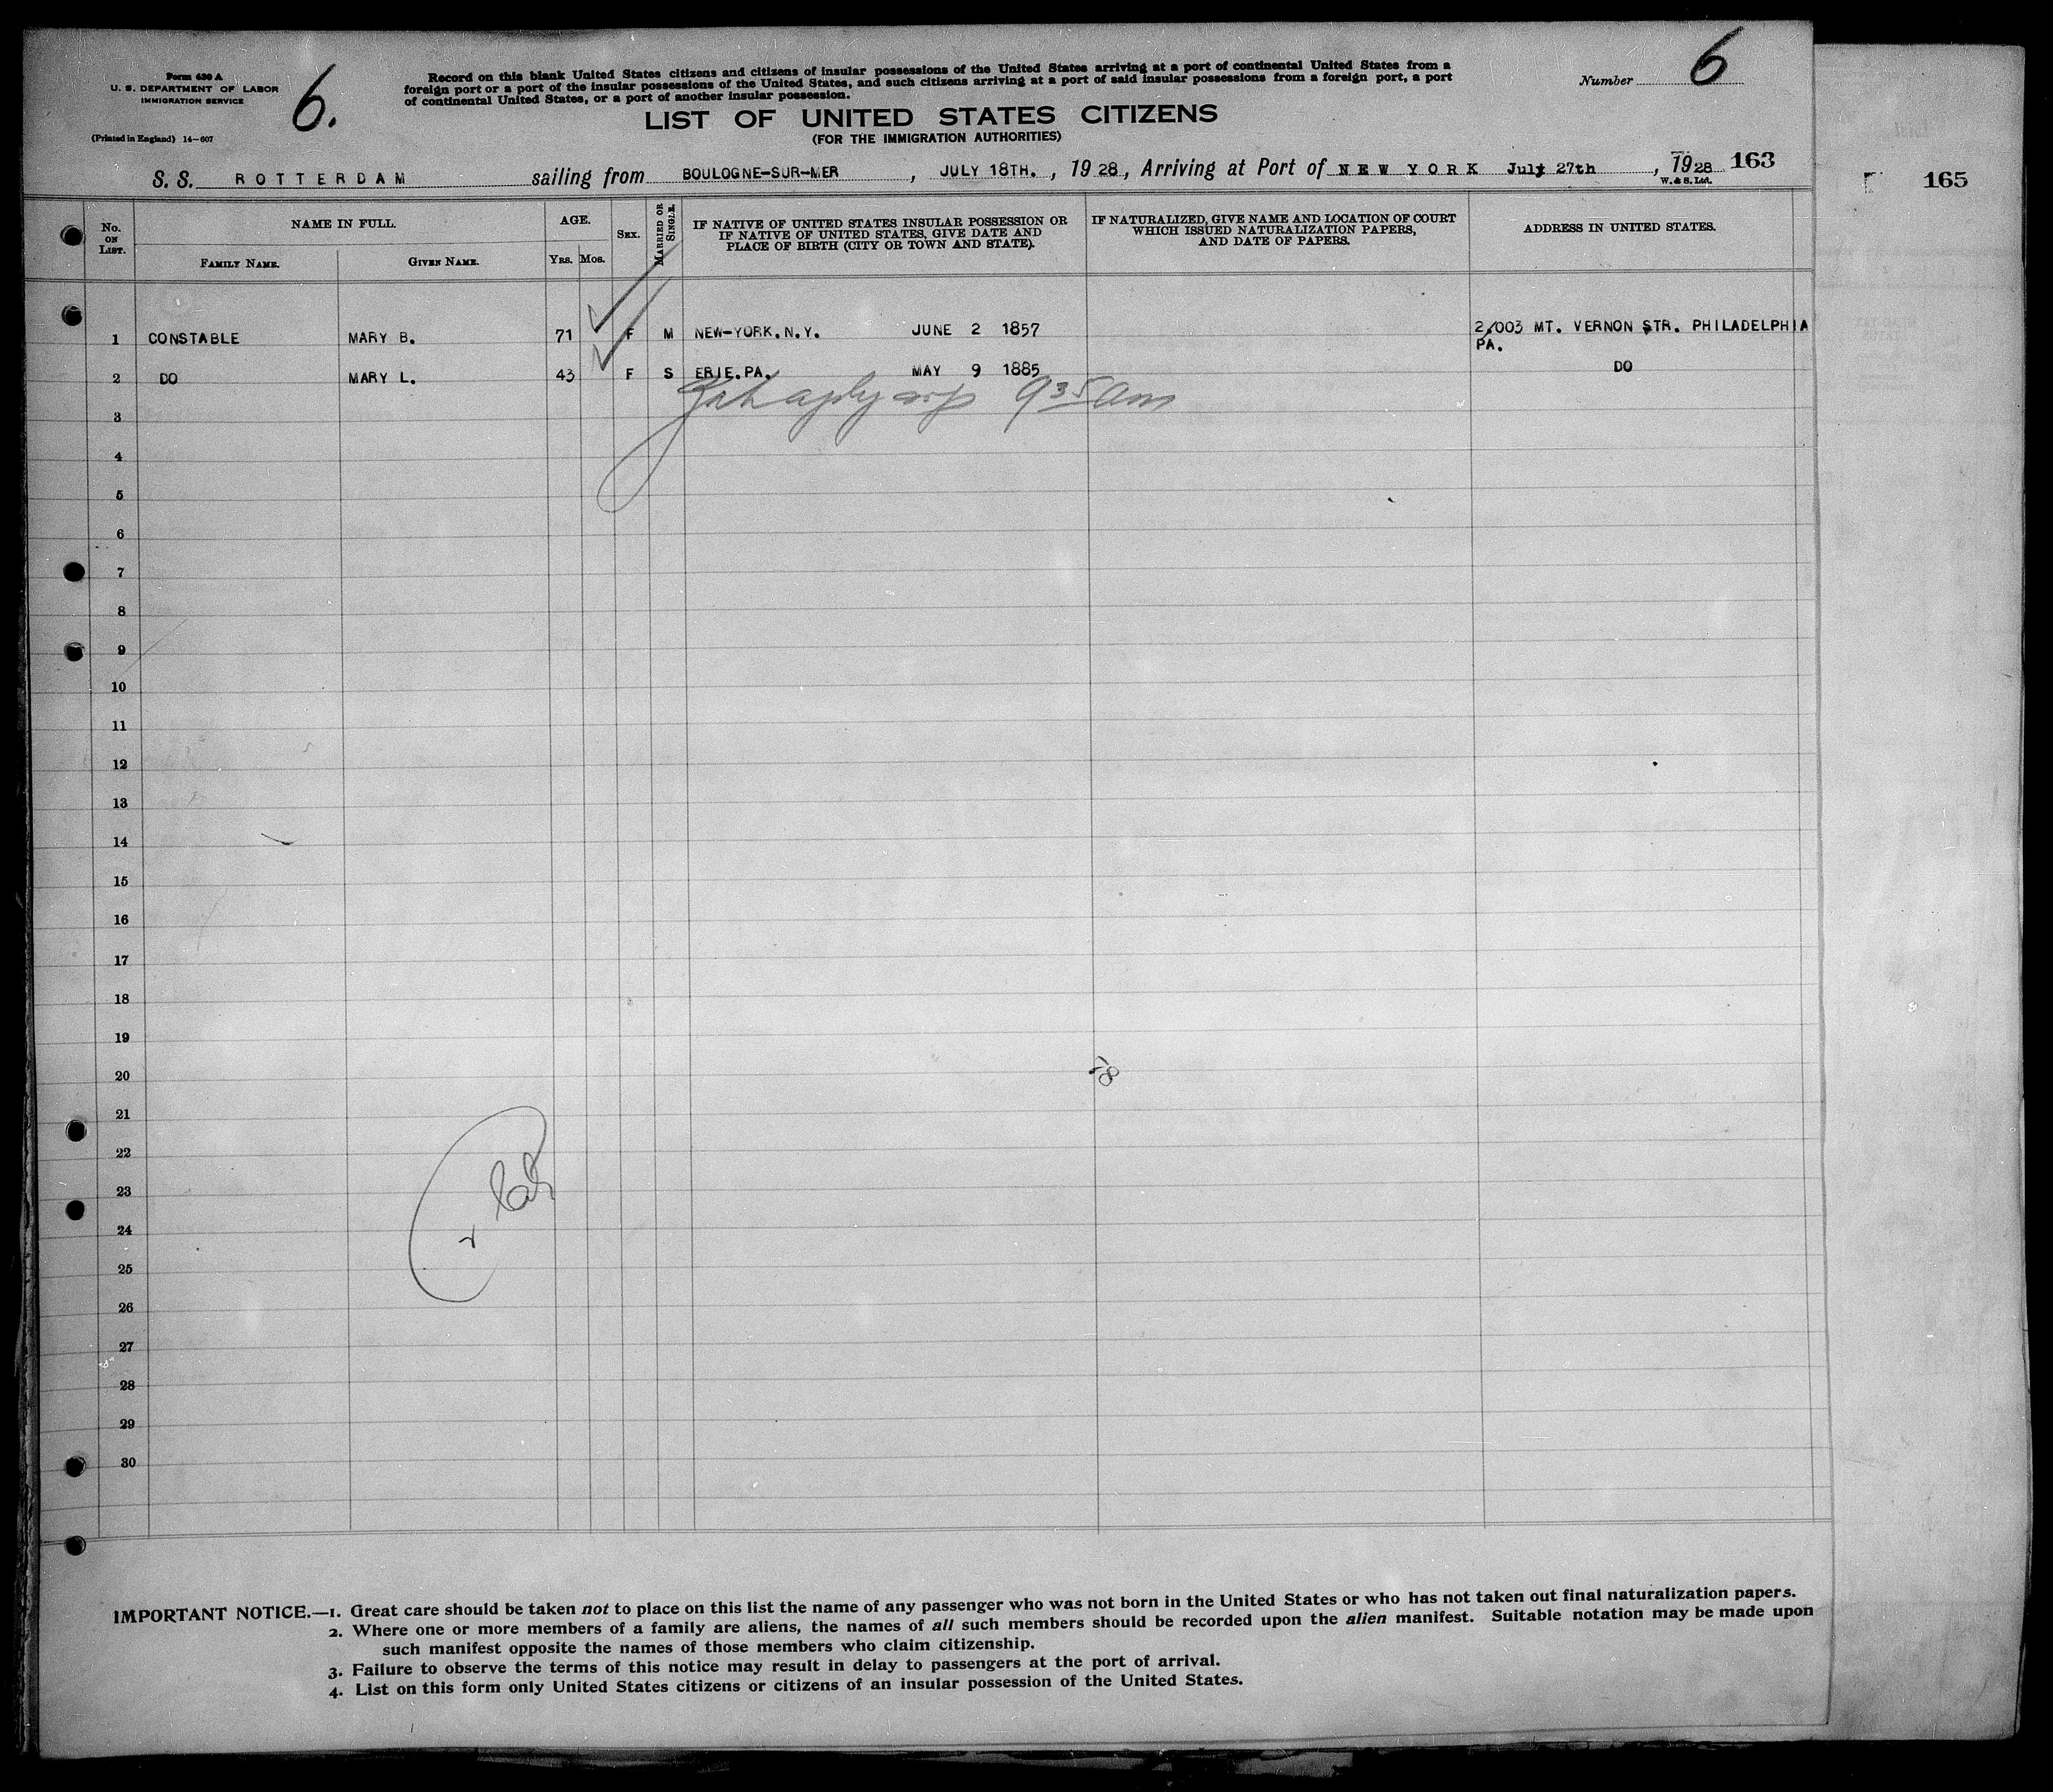 Form 630 A
U. S. DEPARTMENT OF LABOR
IMMIGRATION SERVICE
(Printed in England) 14—607
6.
Record on this blank United States citizens and citizens of insular possessions of the United States arriving at a port of continental United States from a
foreign port or a port of the insular possessions of the United States, and such citizens arriving at a port of said insular possessions from a foreign port, a port
of continental United States, or a port of another insular possession.
Number 6
LIST OF UNITED STATES CITIZENS
(FOR THE IMMIGRATION AUTHORITIES)
S. S. ROTTERDAM sailing from BOULOGNE-SUR-MER, JULY 18TH., 1928, Arriving at Port of NEW YORK July 27th, 1928 163
W. & S. Ltd.
165
No. ON LIST.
NAME IN FULL.
FAMILY NAME. GIVEN NAME.
AGE.
YRS. MOS.
SEX.
MARRIED OR SINGLE.
IF NATIVE OF UNITED STATES INSULAR POSSESSION OR
IF NATIVE OF UNITED STATES, GIVE DATE AND
PLACE OF BIRTH (CITY OR TOWN AND STATE).
IF NATURALIZED, GIVE NAME AND LOCATION OF COURT
WHICH ISSUED NATURALIZATION PAPERS,
AND DATE OF PAPERS.
ADDRESS IN UNITED STATES.
1 CONSTABLE MARY B. 71 F M NEW-YORK.N.Y. JUNE 2 1857 2003 MT. VERNON STR. PHILADELPHIA
PA.
2 DO MARY L. 43 F S ERIE.PA. MAY 9 1885 DO
9 35 am
3
4
5
6
7
8
9
10
11
12
13
14
15
16
17
18
19
20
21
22
23
24
25
26
27
28
29
30
IMPORTANT NOTICE.—1. Great care should be taken not to place on this list the name of any passenger who was not born in the United States or who has not taken out final naturalization papers.
2. Where one or more members of a family are aliens, the names of all such members should be recorded upon the alien manifest. Suitable notation may be made upon
such manifest opposite the names of those members who claim citizenship.
3. Failure to observe the terms of this notice may result in delay to passengers at the port of arrival.
4. List on this form only United States citizens or citizens of an insular possession of the United States.